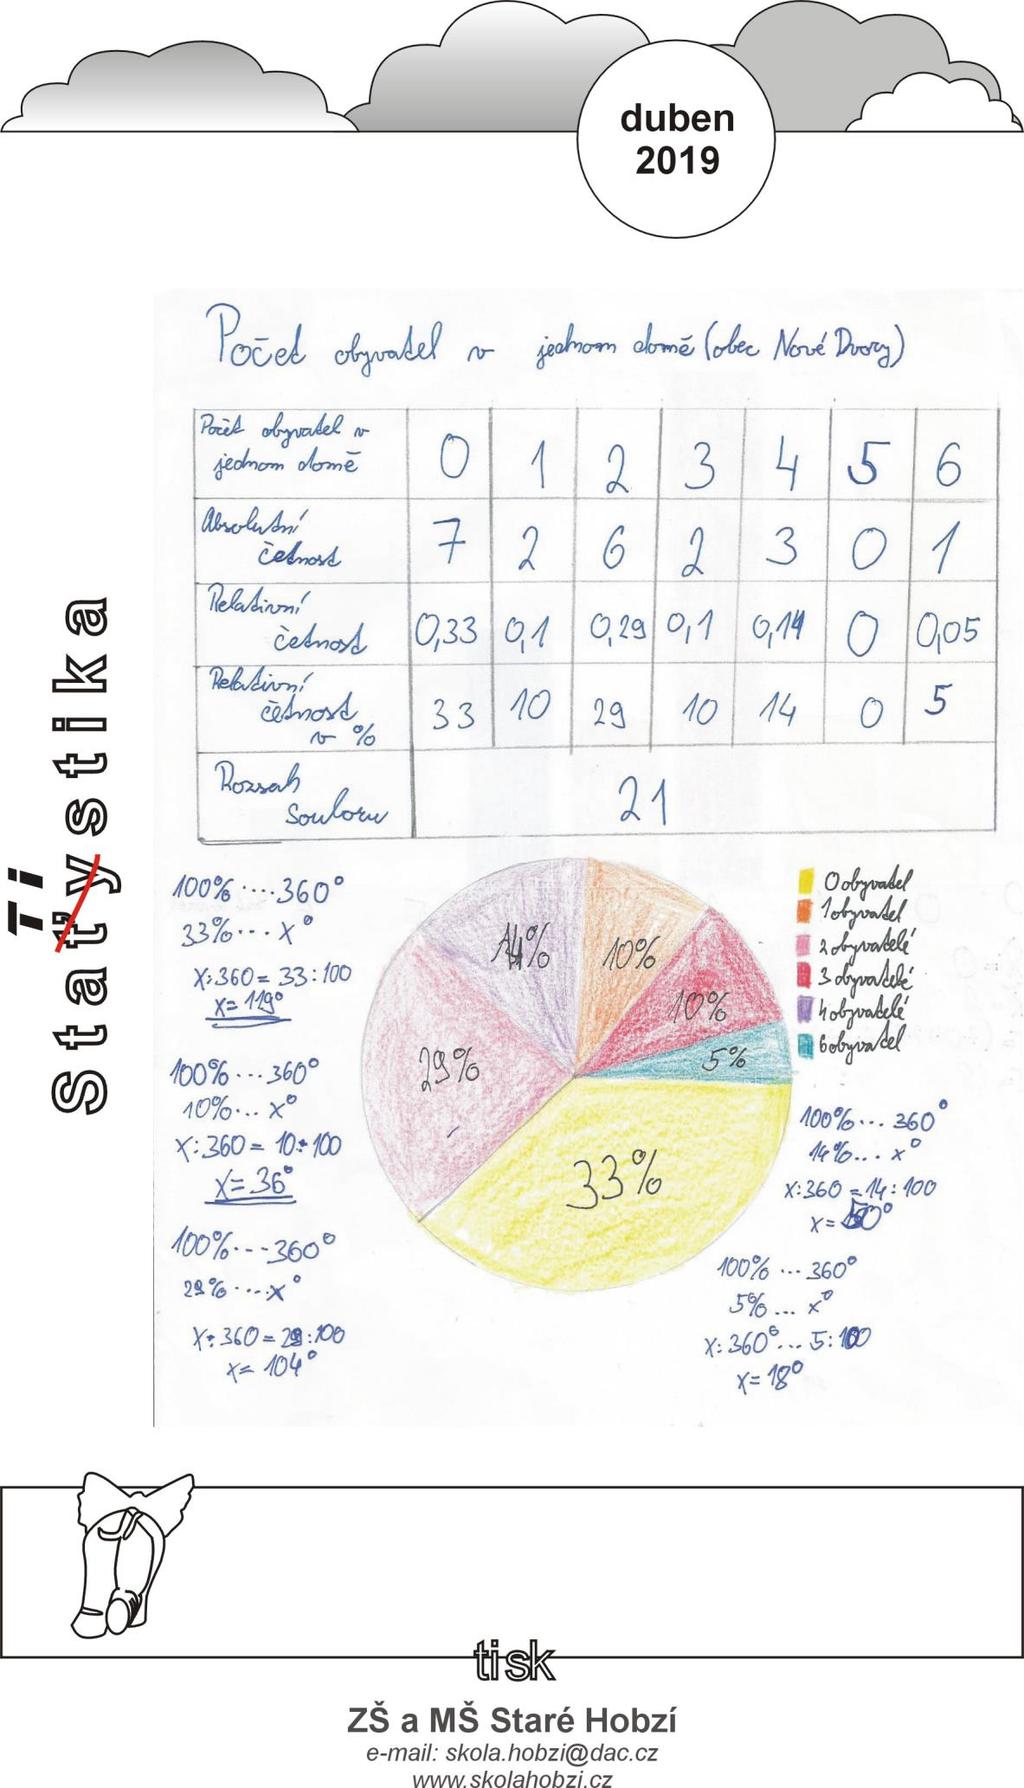 duben
2019
Statystika
Ti
Počet obyvatel v jednom domě (obec Nové Dvory)
Počet obyvatel v
jednom domě 0 1 2 3 4 5 6
Absolutní
četnost 7 2 6 2 3 0 1
Relativní
četnost 0,33 0,1 0,29 0,1 0,14 0 0,05
Relativní
četnost
v % 33 10 29 10 14 0 5
Rozsah
souboru 21
100% .... 360°
33% ... x°
x:360 = 33:100
x = 119°
100% ... 360°
10% ... x°
x:360 = 10:100
x = 36°
100% ... 360°
29% ... x°
x:360 = 29:100
x = 104°
14%
10%
10%
5%
29%
33%
0 obyvatel
1 obyvatel
2 obyvatelé
3 obyvatelé
4 obyvatelé
6 obyvatel
100% ... 360°
14% ... x°
x:360 = 14:100
x = 50°
100% ... 360°
5% ... x°
x:360° ... 5:100
x = 18°
tisk
ZŠ a MŠ Staré Hobzí
e-mail: skola.hobzi@dac.cz
www.skolahobzi.cz